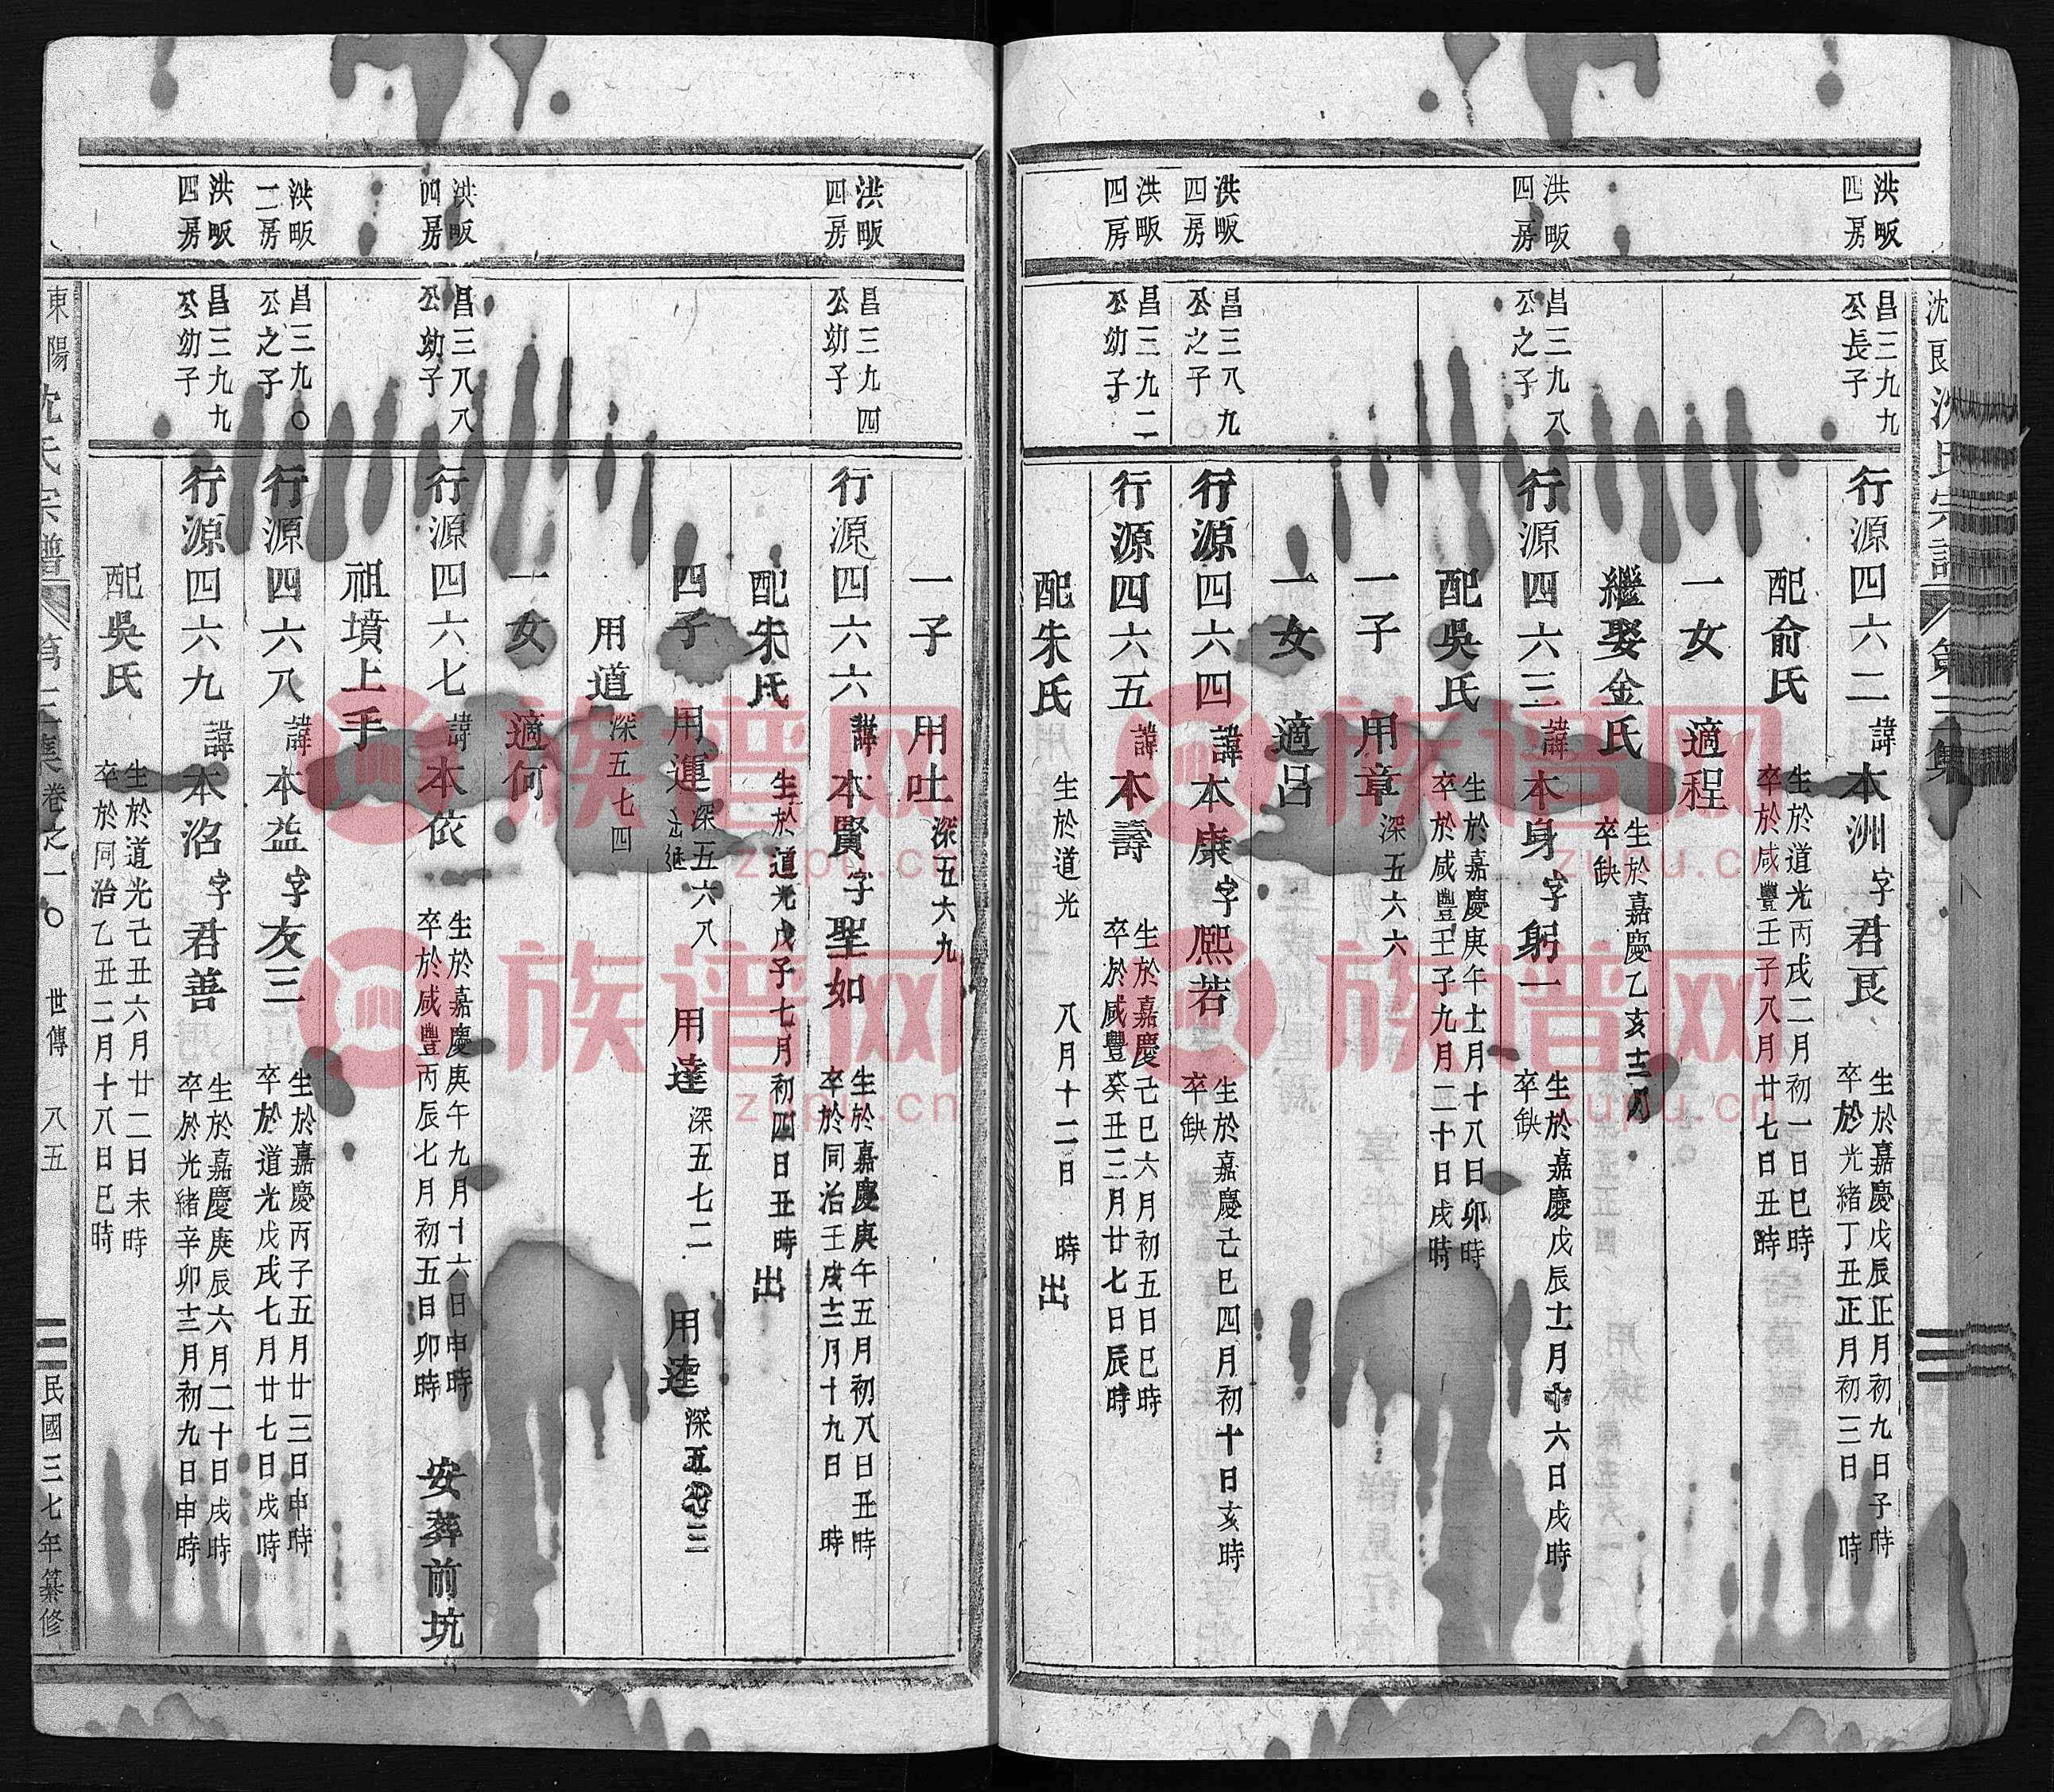 沈良沈氏宗譜 第三集
洪畈四房
昌三九九公長子
行源四六二 諱本洲 字君良 生於嘉慶戊辰正月初九日子時 卒於光緒丁丑正月初三日 時
配俞氏 生於道光丙戌二月初一日巳時 卒於咸豐壬子八月廿七日丑時
一女 適程
繼娶金氏 生於嘉慶乙亥十二月 卒缺
洪畈四房
昌三九八公之子
行源四六三 諱本身 字躬一 生於嘉慶戊辰十一月十六日戌時 卒缺
配吳氏 生於嘉慶庚午十一月十八日卯時 卒於咸豐壬子九月二十日戌時
一子 用章 深五六六
一女 適呂
洪畈四房
昌三八九公之子
行源四六四 諱本康 字熙若 生於嘉慶己巳四月初十日亥時 卒缺
洪畈四房
昌三九二公幼子
行源四六五 諱本壽 生於嘉慶己巳六月初五日巳時 卒於咸豐癸丑三月廿七日辰時
配朱氏 生於道光 八月十二日 時 出
一子 用吐 深五六九
洪畈四房
昌三九四公幼子
行源四六六 諱本賢 字聖如 生於嘉慶庚午五月初八日丑時 卒於同治壬戌十二月十九日 時
配朱氏 生於道光戊子七月初四日丑時 出
四子 用運 深五六八 出繼 用達 深五七二 用逵 深五七三
用道 深五七四
一女 適何
洪畈四房
昌三八八公幼子
行源四六七 諱本依 生於嘉慶庚午九月十六日申時 卒於咸豐丙辰七月初五日卯時 安葬前坑
祖墳上手
洪畈二房
昌三九〇公之子
行源四六八 諱本益 字友三 生於嘉慶丙子五月廿三日申時 卒於道光戊戌七月廿七日戌時
洪畈四房
昌三九九公幼子
行源四六九 諱本沼 字君善 生於嘉慶庚辰六月二十日戌時 卒於光緒辛卯十二月初九日申時
配吳氏 生於道光己丑六月廿二日未時 卒於同治乙丑二月十八日巳時
東陽沈氏宗譜 第三集 卷之一〇 世傳 八五 民國三七年纂修
族谱网
zupu.cn
族谱网
zupu.cn
族谱网
zupu.cn
族谱网
zupu.cn